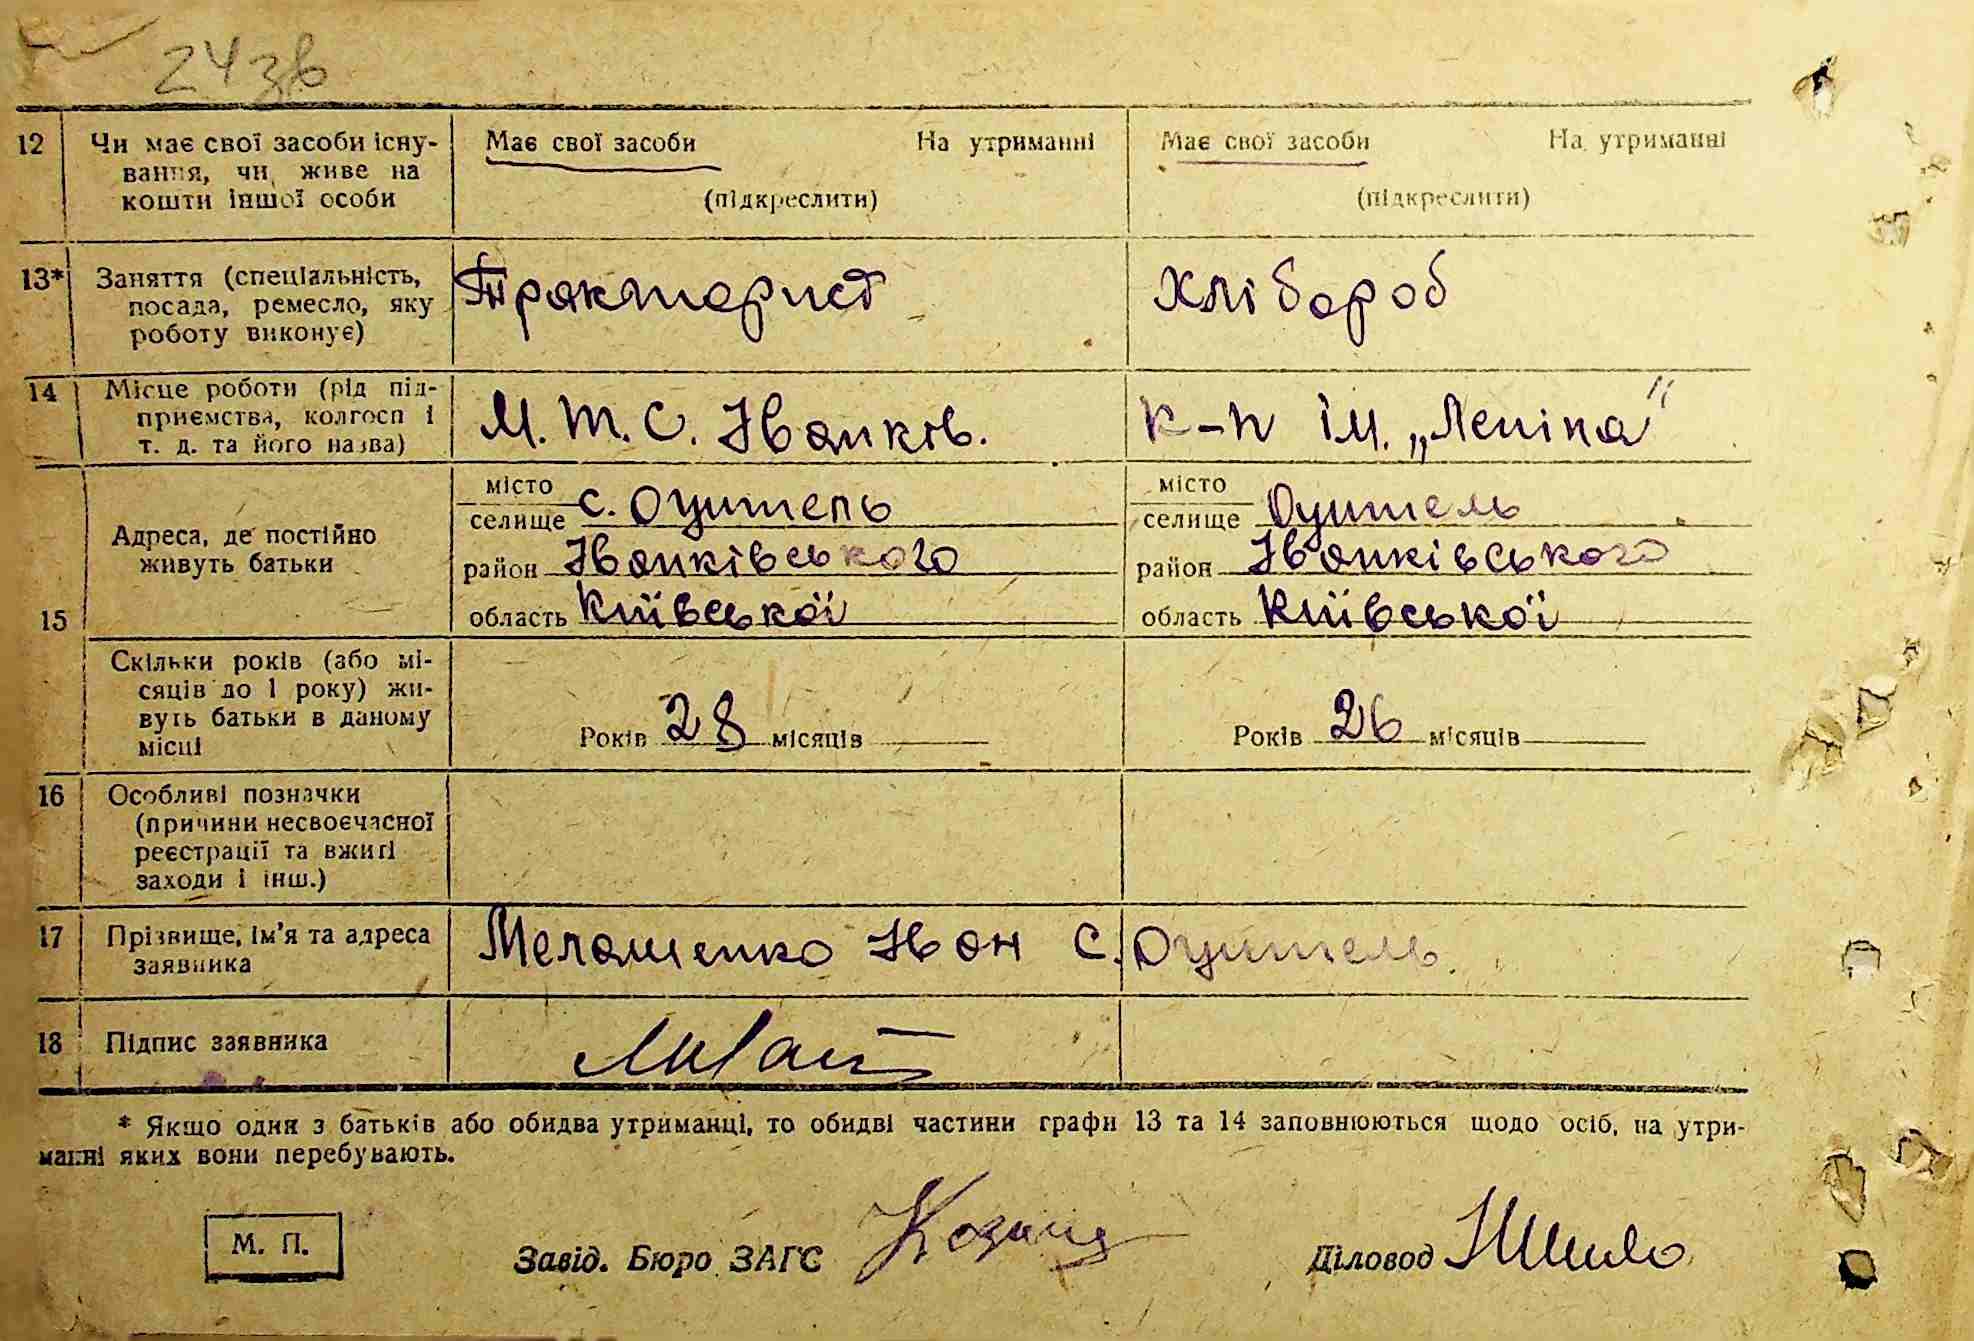 24зв
12 Чи має свої засоби існу- Має свої засоби На утриманні Має свої засоби На утриманні
вання, чи живе на
кошти іншої особи (підкреслити) (підкреслити)
13* Заняття (спеціальність, Тракторист Хлібороб
посада, ремесло, яку
роботу виконує)
14 Місце роботи (рід під- М.Т.С. Іванків. к-п ім. „Леніна"
приємства, колгосп і
т. д. та його назва)
15 Адреса, де постійно
живуть батьки
місто селище с. Оцитель місто селище Оцитель
район Іванківського район Іванківського
область Київської область Київської
Скільки років (або мі-
сяців до 1 року) жи-
вуть батьки в даному
місці
Років 28 місяців Років 26 місяців
16 Особливі позначки
(причини несвоєчасної
реєстрації та вжиті
заходи і інш.)
17 Прізвище, ім'я та адреса Мелашенко Іван с. Оцитель.
заявника
18 Підпис заявника
* Якщо один з батьків або обидва утриманці, то обидві частини графи 13 та 14 заповнюються щодо осіб, на утри-
манні яких вони перебувають.
М. П. Завід. Бюро ЗАГС Діловод